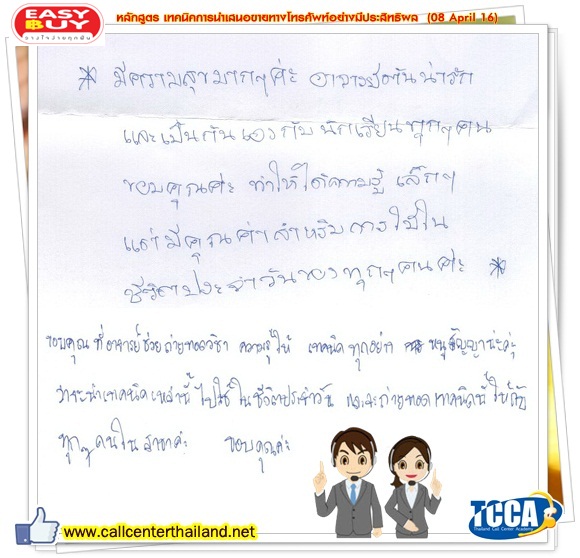 EASY BUY
วางใจง่ายทุกคืน
หลักสูตร เทคนิคการนำเสนอขายทางโทรศัพท์อย่างมีประสิทธิผล (08 April 16)
* มีความสุขมากๆค่ะ อาจารย์ตันน่ารัก
และเป็นกันเองกับนักเรียนทุกๆคน
ขอบคุณค่ะ ทำให้ได้ความรู้ เล็กๆ
แต่มีคุณค่าสำหรับการใช้ใน
ชีวิตประจำวันของทุกๆคนค่ะ *
ขอบคุณที่อาจารย์ช่วยถ่ายทอดวิชา ความรู้ให้ เทคนิคทุกอย่าง หนูสัญญาน่ะค่ะ
ว่าจะนำเทคนิคเหล่านี้ไปใช้ในชีวิตประจำวัน และจะถ่ายทอดเทคนิคนี้ให้กับ
ทุกๆคนในสาขาค่ะ ขอบคุณค่ะ
www.callcenterthailand.net
TCCA
Thailand Call Center Academy